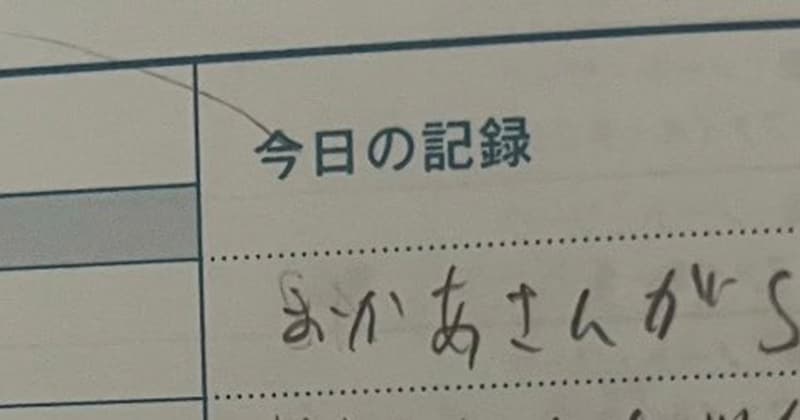 今日の記録
おかあさんが